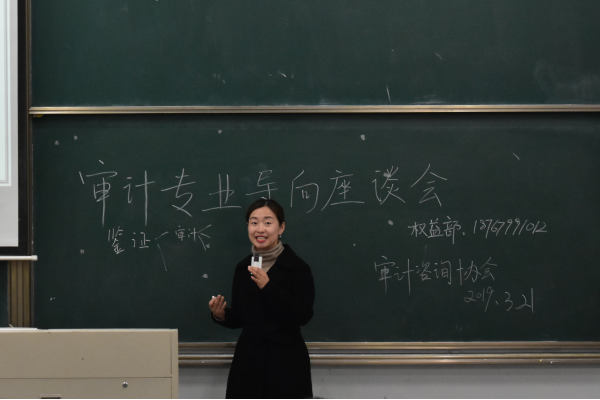 审计专业导向座谈会
鉴证
审计
权益部
审计咨询协会
2019.3.21